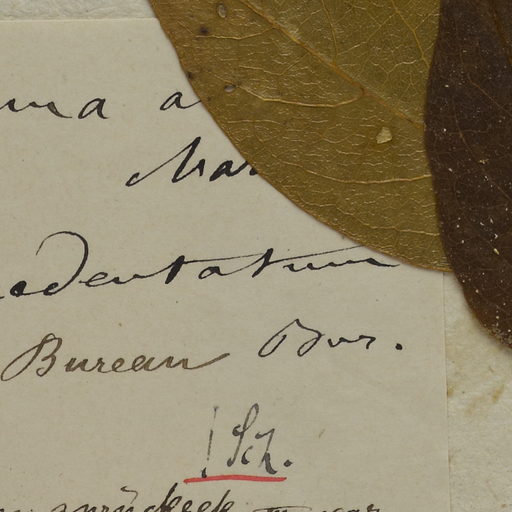 ma a
Mar
adentatum
Bureau Bur.
! Sch.